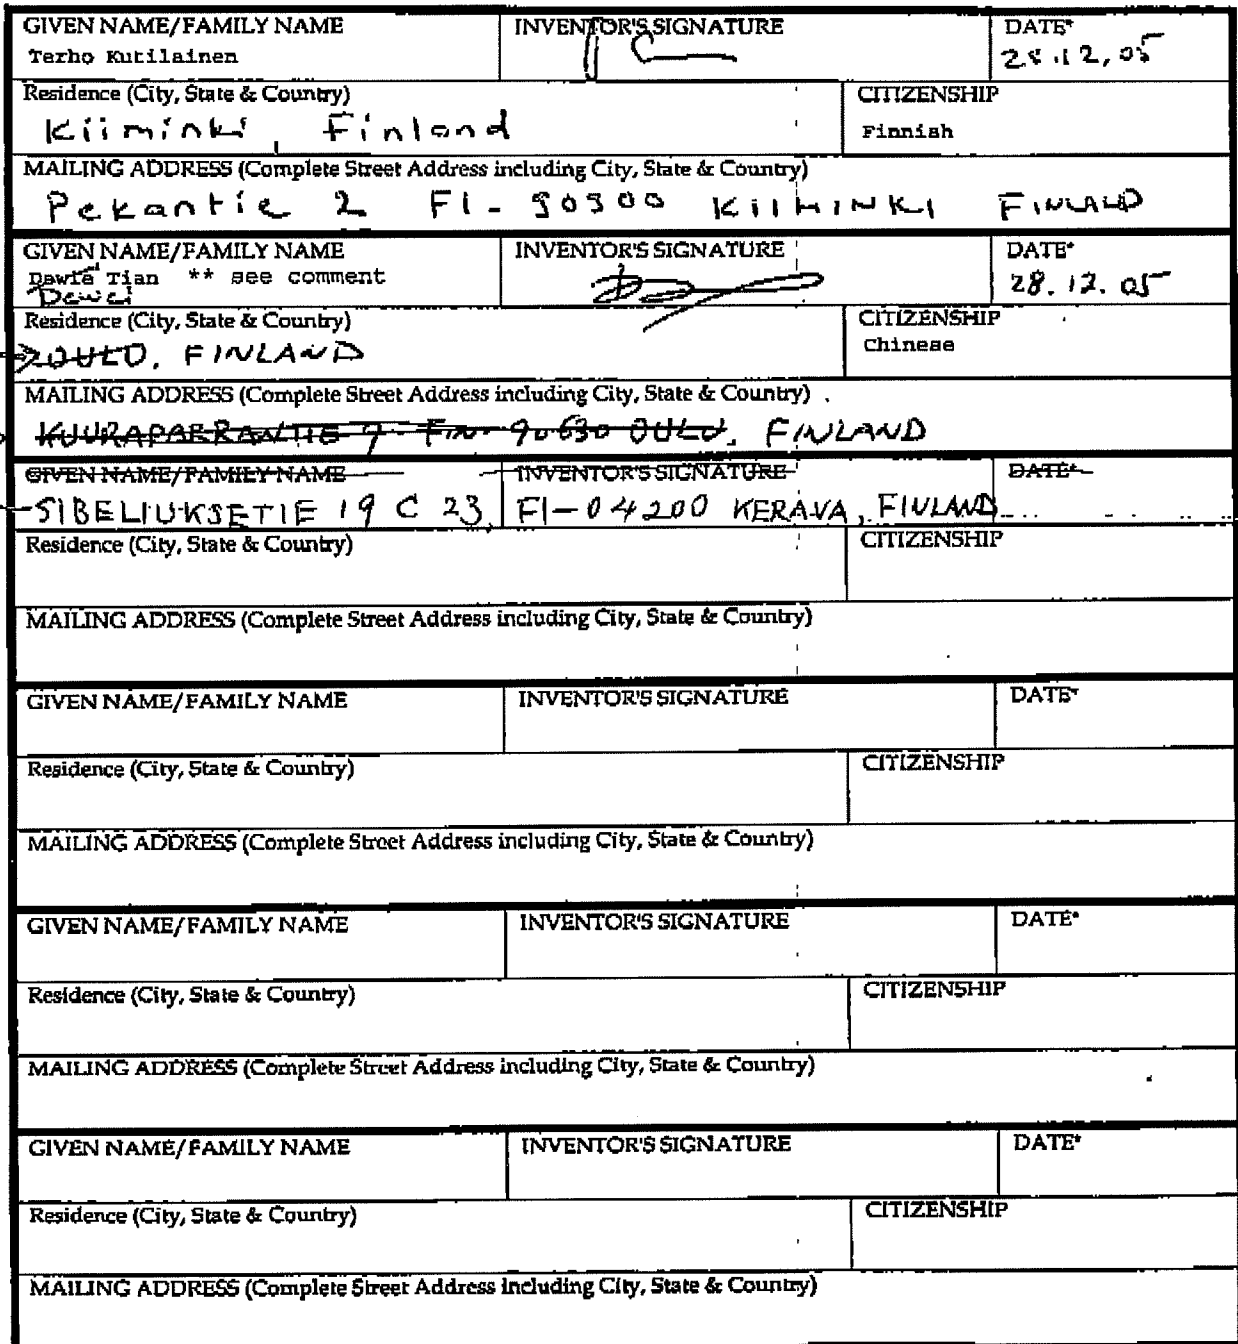 GIVEN NAME/FAMILY NAME INVENTOR'S SIGNATURE DATE*
Terho Kutilainen 28.12.05
Residence (City, State & Country) CITIZENSHIP
Kiiminki, Finland Finnish
MAILING ADDRESS (Complete Street Address including City, State & Country)
Pekantie 2 FI-90900 KIIMINKI FINLAND
GIVEN NAME/FAMILY NAME INVENTOR'S SIGNATURE DATE*
Dawie Tian ** see comment 28.12.05
Dewei
Residence (City, State & Country) CITIZENSHIP
OULU, FINLAND Chinese
MAILING ADDRESS (Complete Street Address including City, State & Country)
KUURAPARRANTIE 9 FIN-90630 OULU, FINLAND
GIVEN NAME/FAMILY NAME INVENTOR'S SIGNATURE DATE*
SIBELIUKSETIE 19 C 23, FI-04200 KERAVA, FINLAND
Residence (City, State & Country) CITIZENSHIP
MAILING ADDRESS (Complete Street Address including City, State & Country)
GIVEN NAME/FAMILY NAME INVENTOR'S SIGNATURE DATE*
Residence (City, State & Country) CITIZENSHIP
MAILING ADDRESS (Complete Street Address including City, State & Country)
GIVEN NAME/FAMILY NAME INVENTOR'S SIGNATURE DATE*
Residence (City, State & Country) CITIZENSHIP
MAILING ADDRESS (Complete Street Address including City, State & Country)
GIVEN NAME/FAMILY NAME INVENTOR'S SIGNATURE DATE*
Residence (City, State & Country) CITIZENSHIP
MAILING ADDRESS (Complete Street Address including City, State & Country)